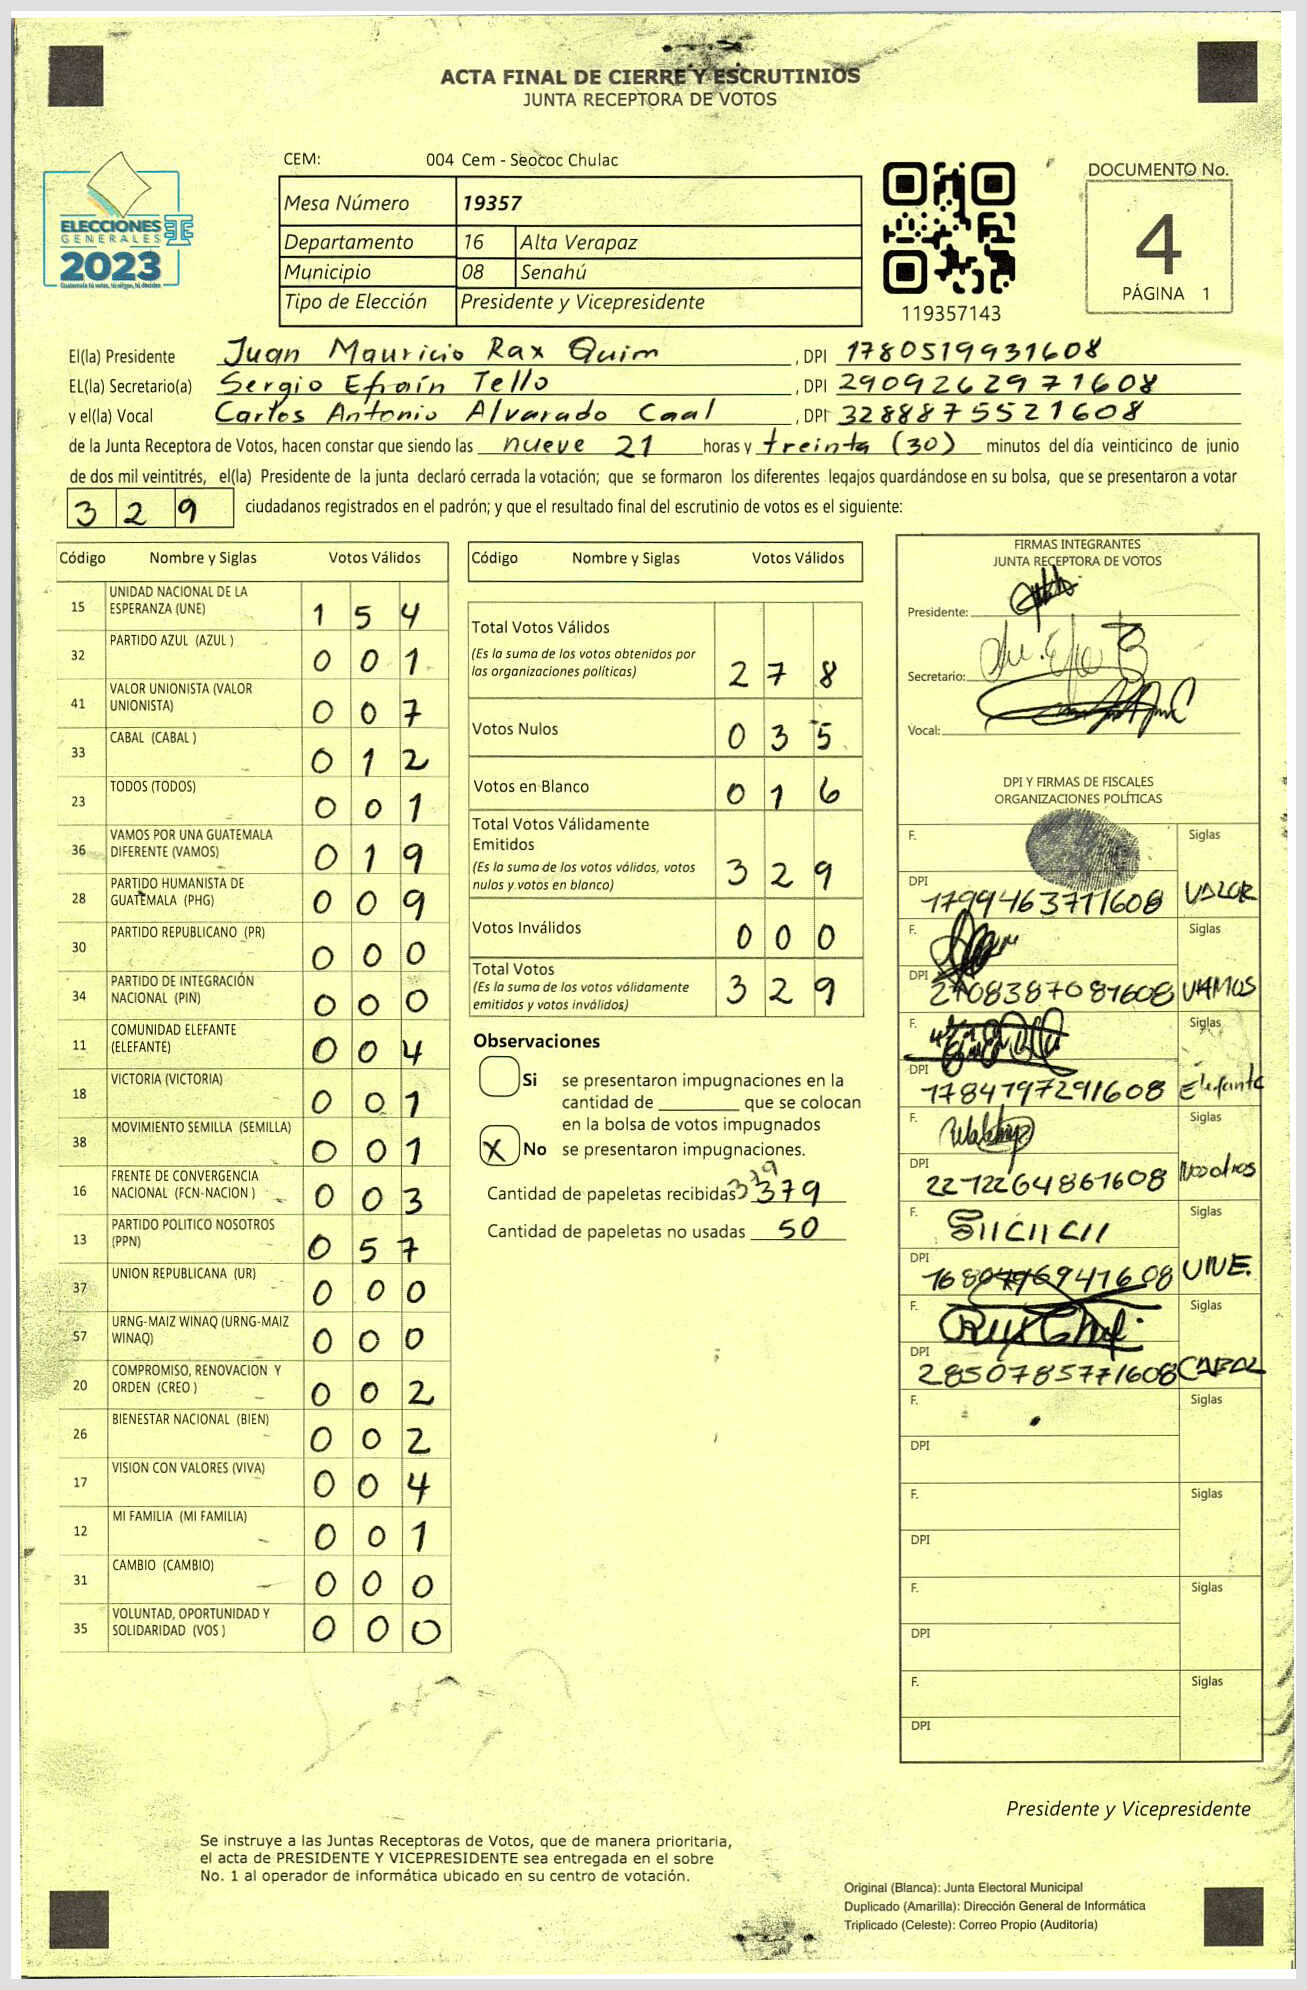 ACTA FINAL DE CIERRE Y ESCRUTINIOS
JUNTA RECEPTORA DE VOTOS
CEM: 004 Cem - Seococ Chulac
Mesa Número 19357
Departamento 16 Alta Verapaz
Municipio 08 Senahú
Tipo de Elección Presidente y Vicepresidente
ELECCIONES
GENERALES
2023
Guatemala tú votas, tú eliges, tú decides
119357143
DOCUMENTO No.
4
PÁGINA 1
El(la) Presidente Juan Mauricio Rax Quim , DPI 1780519931608
EL(la) Secretario(a) Sergio Efraín Tello , DPI 2909262971608
y el(la) Vocal Carlos Antonio Alvarado Caal , DPI 3288875521608
de la Junta Receptora de Votos, hacen constar que siendo las nueve 21 horas y treinta (30) minutos del día veinticinco de junio
de dos mil veintitrés, el(la) Presidente de la junta declaró cerrada la votación; que se formaron los diferentes legajos quardándose en su bolsa, que se presentaron a votar
3 2 9 ciudadanos registrados en el padrón; y que el resultado final del escrutinio de votos es el siguiente:
Código Nombre y Siglas Votos Válidos
15 UNIDAD NACIONAL DE LA
ESPERANZA (UNE) 1 5 4
32 PARTIDO AZUL (AZUL ) 0 0 1
41 VALOR UNIONISTA (VALOR
UNIONISTA) 0 0 7
33 CABAL (CABAL ) 0 1 2
23 TODOS (TODOS) 0 0 1
36 VAMOS POR UNA GUATEMALA
DIFERENTE (VAMOS) 0 1 9
28 PARTIDO HUMANISTA DE
GUATEMALA (PHG) 0 0 9
30 PARTIDO REPUBLICANO (PR) 0 0 0
34 PARTIDO DE INTEGRACIÓN
NACIONAL (PIN) 0 0 0
11 COMUNIDAD ELEFANTE
(ELEFANTE) 0 0 4
18 VICTORIA (VICTORIA) 0 0 1
38 MOVIMIENTO SEMILLA (SEMILLA) 0 0 1
16 FRENTE DE CONVERGENCIA
NACIONAL (FCN-NACION ) 0 0 3
13 PARTIDO POLITICO NOSOTROS
(PPN) 0 5 7
37 UNION REPUBLICANA (UR) 0 0 0
57 URNG-MAIZ WINAQ (URNG-MAIZ
WINAQ) 0 0 0
20 COMPROMISO, RENOVACION Y
ORDEN (CREO ) 0 0 2
26 BIENESTAR NACIONAL (BIEN) 0 0 2
17 VISION CON VALORES (VIVA) 0 0 4
12 MI FAMILIA (MI FAMILIA) 0 0 1
31 CAMBIO (CAMBIO) 0 0 0
35 VOLUNTAD, OPORTUNIDAD Y
SOLIDARIDAD (VOS ) 0 0 0
Código Nombre y Siglas Votos Válidos
Total Votos Válidos
(Es la suma de los votos obtenidos por
las organizaciones políticas) 2 7 8
Votos Nulos 0 3 5
Votos en Blanco 0 1 6
Total Votos Válidamente
Emitidos
(Es la suma de los votos válidos, votos
nulos y votos en blanco) 3 2 9
Votos Inválidos 0 0 0
Total Votos
(Es la suma de los votos válidamente
emitidos y votos inválidos) 3 2 9
Observaciones
Si se presentaron impugnaciones en la
cantidad de ________ que se colocan
en la bolsa de votos impugnados
X No se presentaron impugnaciones.
379
Cantidad de papeletas recibidas 379
Cantidad de papeletas no usadas 50
FIRMAS INTEGRANTES
JUNTA RECEPTORA DE VOTOS
Presidente:
Secretario:
Vocal:
DPI Y FIRMAS DE FISCALES
ORGANIZACIONES POLÍTICAS
F. Siglas
DPI 1799463711608 VALOR
F. Siglas
DPI 2708387081608 VAMOS
F. Siglas
DPI 1784797291608 Elefante
F. Siglas
DPI 2272264861608 Nosotros
F. Siglas
DPI 1680796941608 UNE.
F. Siglas
DPI 2850785771608 CABAL
F. Siglas
DPI
F. Siglas
DPI
F. Siglas
DPI
F. Siglas
DPI
Presidente y Vicepresidente
Se instruye a las Juntas Receptoras de Votos, que de manera prioritaria,
el acta de PRESIDENTE Y VICEPRESIDENTE sea entregada en el sobre
No. 1 al operador de informática ubicado en su centro de votación.
Original (Blanca): Junta Electoral Municipal
Duplicado (Amarilla): Dirección General de Informática
Triplicado (Celeste): Correo Propio (Auditoría)